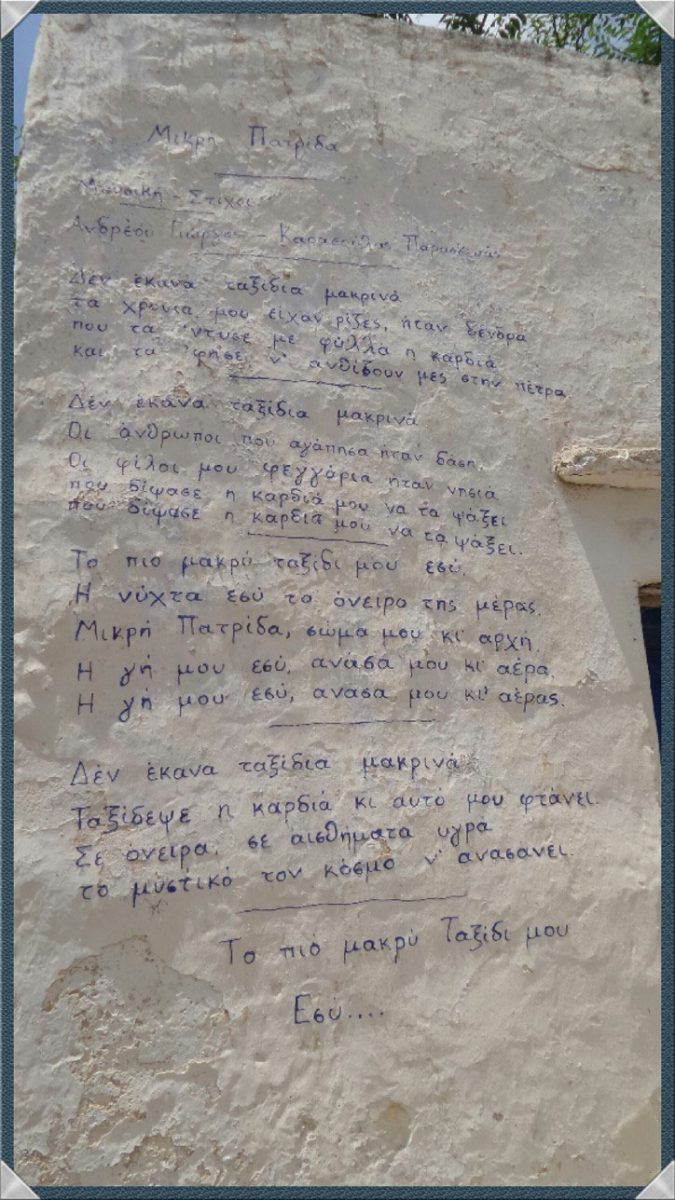 Μικρή Πατρίδα
Μουσική - Στίχοι
Ανδρέου Γιώργος - Καρασούλας Παρασκευάς
Δέν έκανα ταξίδια μακρινά
τα χρόνια μου είχαν ρίζες, ήταν δένδρα
που τα 'ντυσε με φύλλα η καρδιά
και τα 'φησε ν' ανθίσουν μες στην πέτρα.
Δέν έκανα ταξίδια μακρινά
Οι άνθρωποι που αγάπησα ήταν δάση.
Οι φίλοι μου φεγγάρια ήταν νησιά
που δίψασε η καρδιά μου να τα ψάξει
που δίψασε η καρδιά μου να τα ψάξει.
Το πιο μακρύ ταξίδι μου εσύ.
Η νύχτα εσύ το όνειρο της μέρας.
Μικρή Πατρίδα, σώμα μου κι' αρχή.
Η γή μου εσύ, ανάσα μου κι' αέρα.
Η γή μου εσύ, ανάσα μου κι' αέρας.
Δέν έκανα ταξίδια μακρινά
Ταξίδεψε η καρδιά κι αυτό μου φτάνει.
Σε όνειρα, σε αισθήματα υγρά
το μυστικό τον κόσμο ν' ανασάνει.
Το πιό μακρύ Ταξίδι μου
Εσύ....